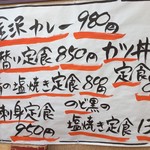 金沢カレー 980円
替り定食 850円 カツ丼
の塩焼き定食 850 定食
刺身定食 のど黒の
950円 塩焼き定食